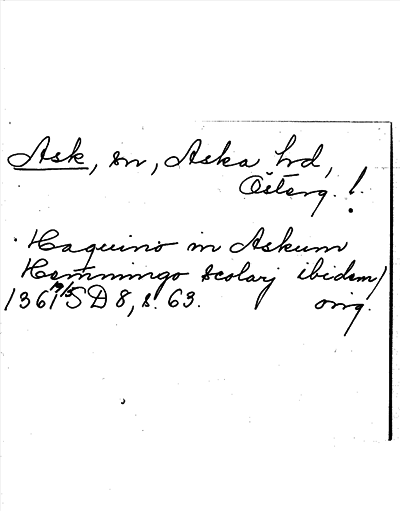 Ask, sn, Aska hd,
Österg. !
Haquino in Askum
Hemmingo scolarj ibidem)
1361 7/5 SD 8, s. 63. orig.